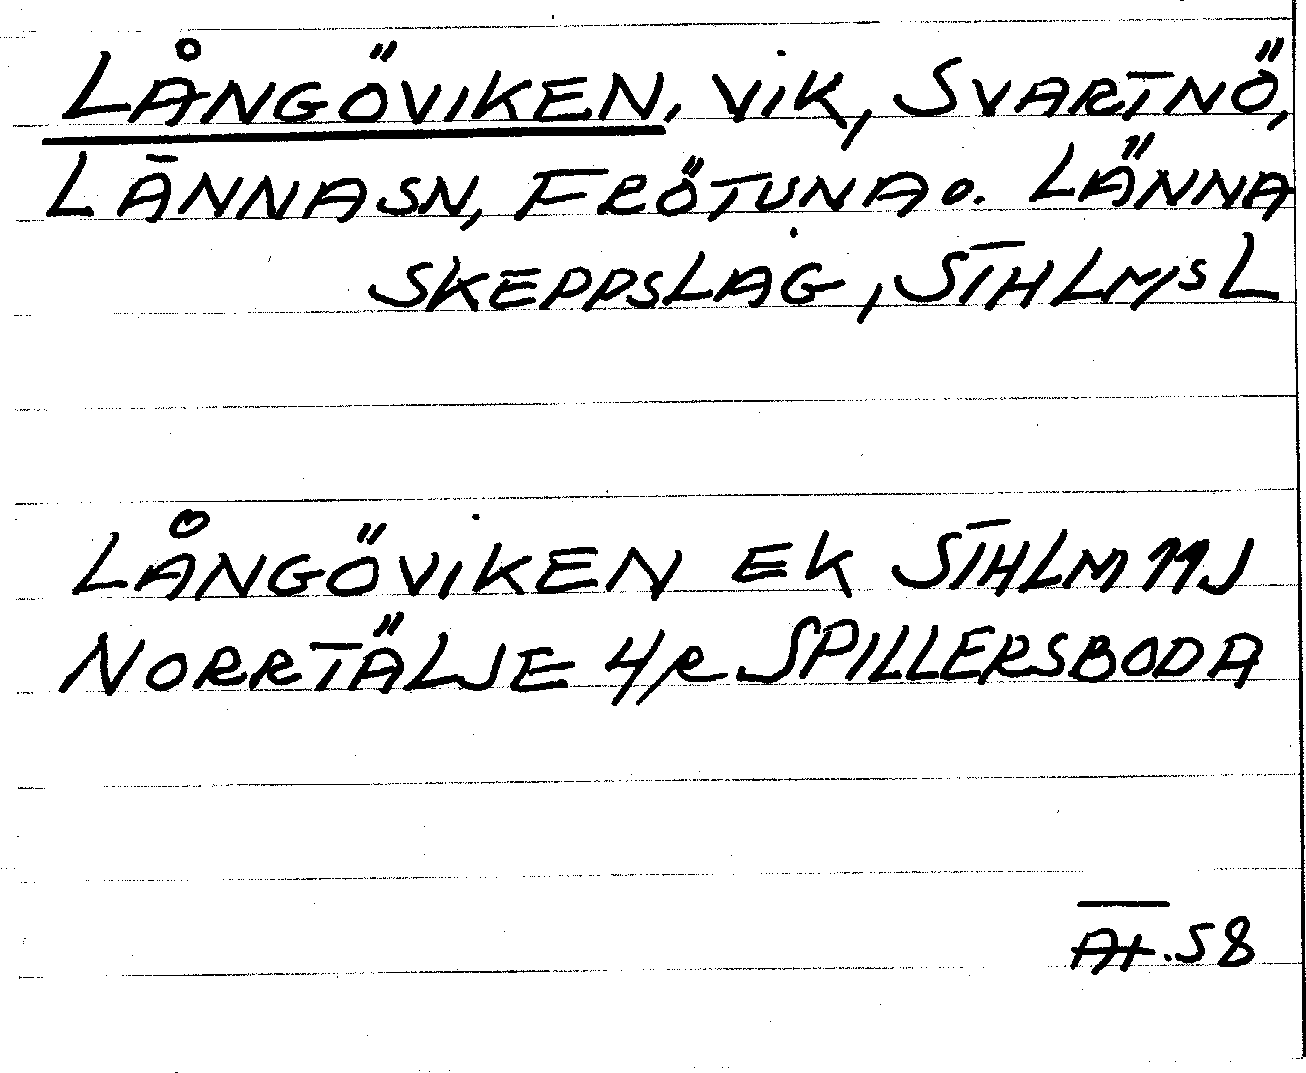 LÅNGÖVIKEN, VIK, SVARTNÖ,
LÄNNA SN, FRÖTUNA O. LÄNNA
SKEPPSLAG, STHLMS L
LÅNGÖVIKEN EK STHLM 11J
NORRTÄLJE 4/R SPILLERSBODA
58